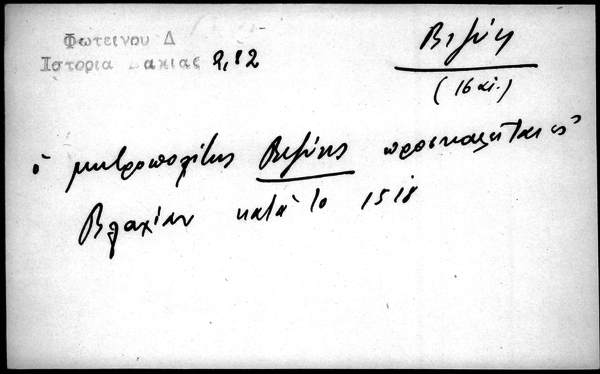 Φωτεινου Δ
Ιστορια Δακιας 2,82
Βιζύη
(16 αι.)
ὁ μητροπολίτης Βιζύης προσκαλεῖται εἰς
Βλαχίαν κατὰ το 1518